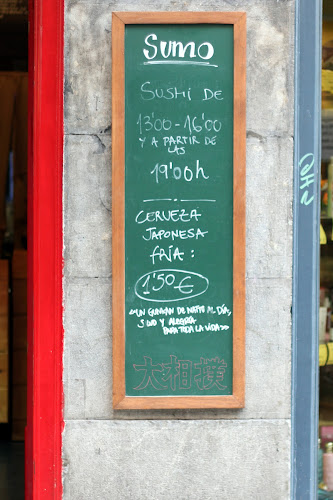 SUMO
SUSHI DE
13'00-16'00
Y A PARTIR DE
LAS
19'00h
CERVEZA
JAPONESA
FRÍA:
1'50€
<<UN GUNKAN DE NATTO AL DÍA,
SUMO Y ALEGRÍA
PARA TODA LA VIDA>>
大相撲